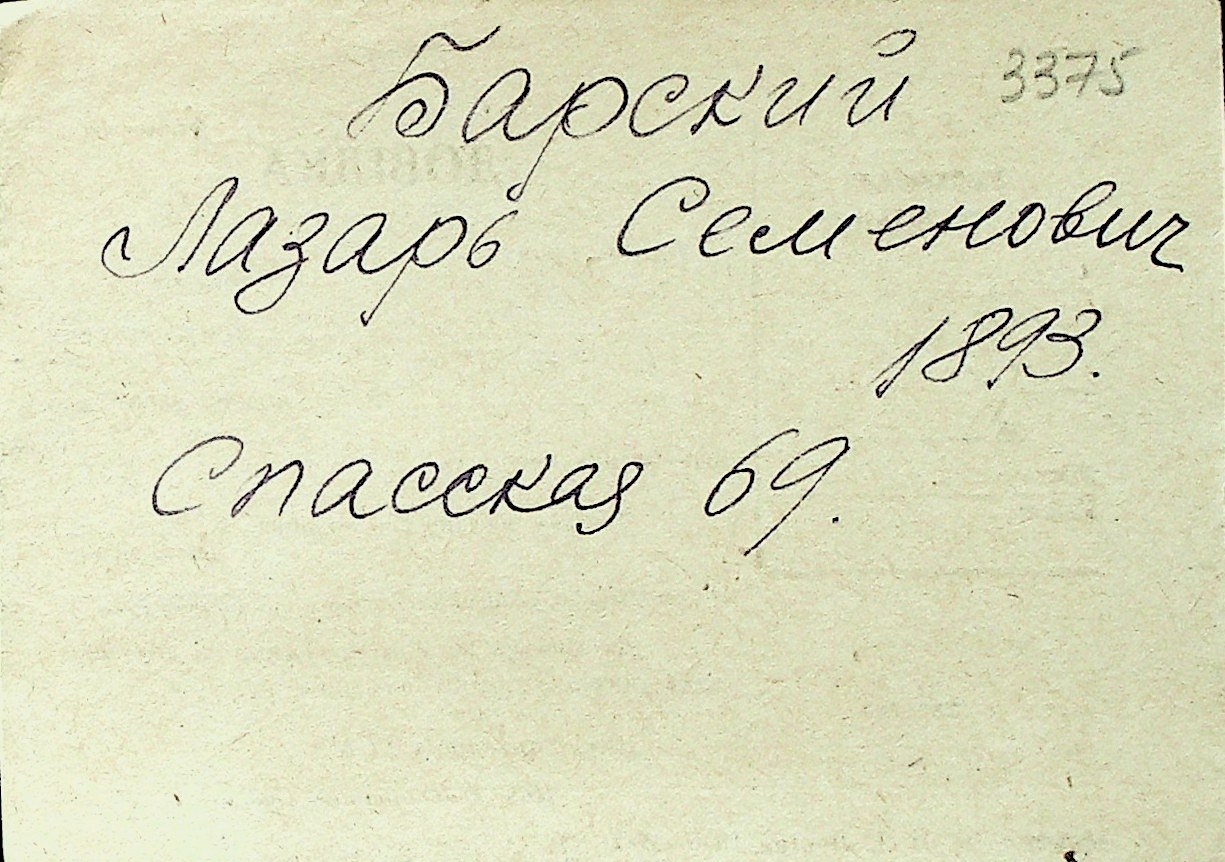 Барский 3375
Лазарь Семенович
1893.
Спасская 69.